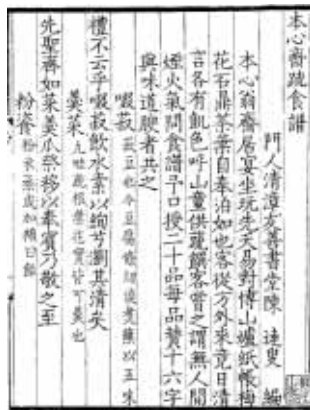 本心齋疏食譜
門人清漳友善書堂陳達叟編
本心翁齋居宴坐玩先天易對博山爐紙帳梅
花石鼎茶葉自奉泊如也客從方外來竟日清
言各有飢色呼山童供蔬饌客嘗之謂無人間
煙火氣問食譜予口授二十品每品贊十六字
與味道腴者共之
啜菽 菽豆也今豆腐條切淡煮蘸以五味
禮不云乎啜菽飲水素以絢兮瀏其清矣
羹菜 凡畦蔬根葉花實皆可羹也
先聖齊如菜羹瓜祭移以奉賓乃敬之至
粉餈 粉米蒸成加糖曰飴